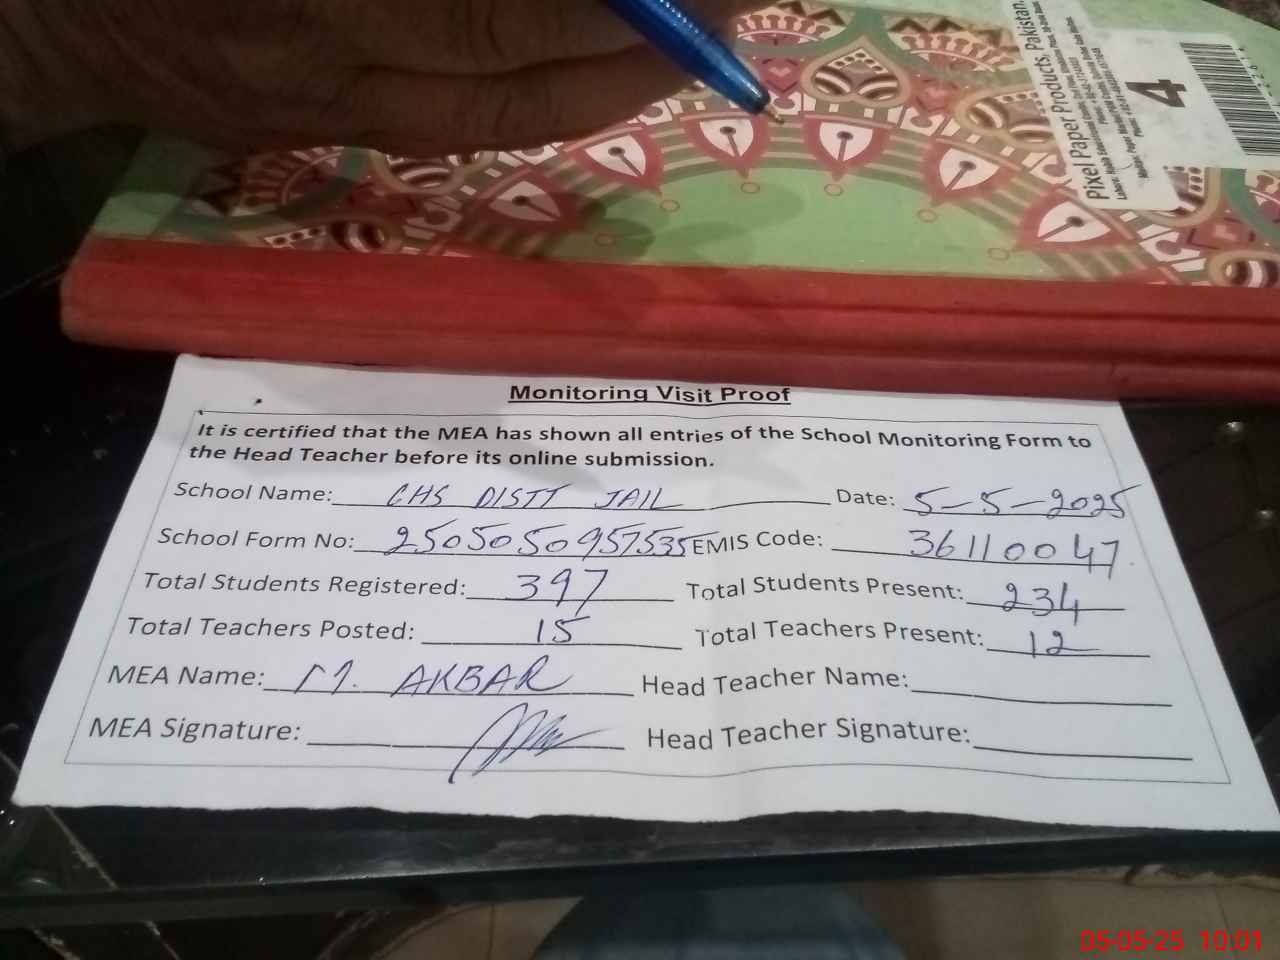 Pixel Paper Products, Pakistan.
4
Monitoring Visit Proof
It is certified that the MEA has shown all entries of the School Monitoring Form to
the Head Teacher before its online submission.
School Name: GHS DISTT JAIL Date: 5-5-2025
School Form No: 2505050957535 EMIS Code: 36110047
Total Students Registered: 397 Total Students Present: 234
Total Teachers Posted: 15 Total Teachers Present: 12
MEA Name: M. AKBAR Head Teacher Name:
MEA Signature: Head Teacher Signature:
05-05-25 10:01